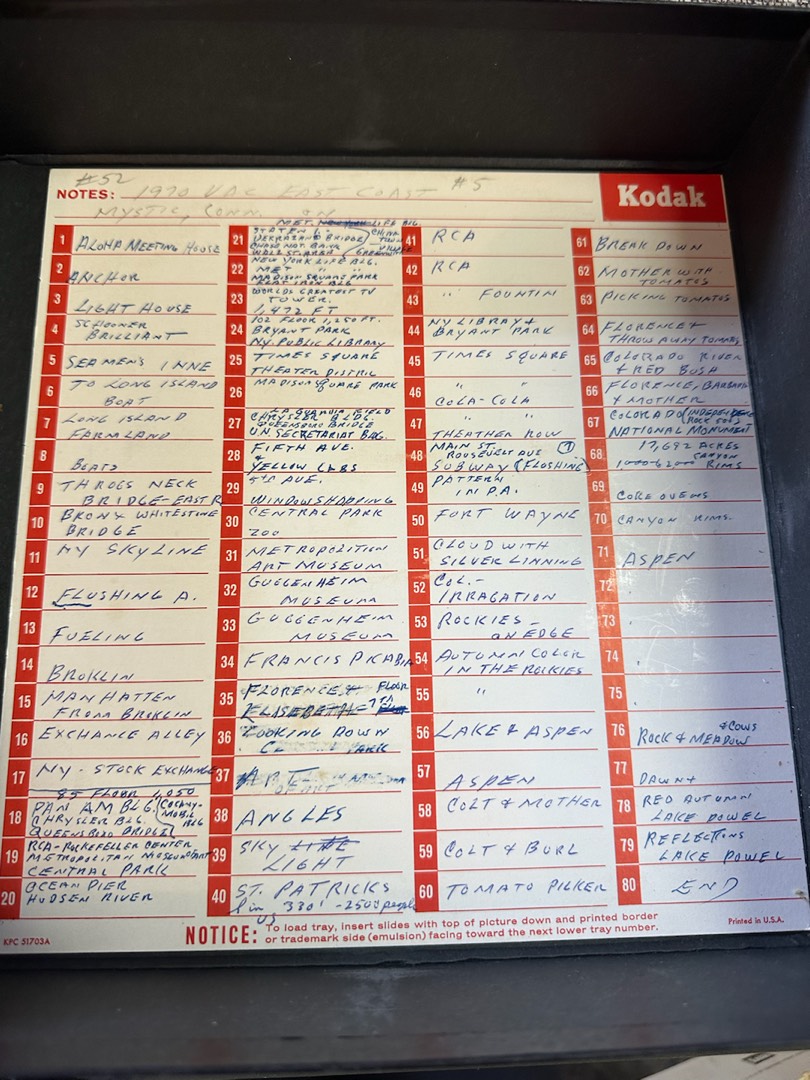 #52
NOTES: 1970 VAC EAST COAST #5
MYSTIC, CONN. ON
Kodak
1 ALOHA MEETING HOUSE
2 ANCHOR
3 LIGHT HOUSE
4 SCHOONER
BRILLIANT
5 SEAMENS INNE
6 TO LONG ISLAND
BOAT
7 LONG ISLAND
FARMLAND
8 BOATS
9 THROGS NECK
BRIDGE-EAST R
10 BRONX WHITESTONE
BRIDGE
11 NY SKYLINE
12 FLUSHING A.
13 FUELING
14 BROKLIN
15 MANHATTEN
FROM BROKLIN
16 EXCHANGE ALLEY
17 NY-STOCK EXCHANGE
85 FLOOR 1,050
18 PAN AM BLG. (COCONY-
MOBIL
CHRYSLER BLG. BLG
QUEENSBORO BRIDGE
19 RCA-ROCKEFELLER CENTER
METROPOLITAN MUSEUM ART
CENTRAL PARK
20 OCEAN PIER
HUDSEN RIVER
MET. LIFE BLG
21 STATEN I.
BRIDGE CHINA
TOWN
CHASE NAT. BANK
WALL ST. AREA GREENWICH
NEW YORK LIFE BLG.
22 MET " "
MADISON SQUARE PARK
FLAT IRON BLG
23 WORLDS GREATEST TV
TOWER.
1,472 FT
24 102 FLOOR 1,250 FT.
BRYANT PARK
NY. PUBLIC LIBRARY
25 TIMES SQUARE
THEATER DISTRIC
26 MADISON SQUARE PARK
LA GUARDIA FIELD
27 CHRYSLER BLDG.
QUEENSBORO BRIDGE
U.N. SECRETARIAT BLG.
28 FIFTH AVE.
& YELLOW CABS
29 5TH AVE.
WINDOW SHOPPING
30 CENTRAL PARK
ZOO
31 METROPOLITION
ART MUSEUM
32 GUGGENHEIM
MUSEUM
33 GUGGENHEIM
MUSEUM
34 FRANCIS PICABIA
35 FLORENCE & FLOOR
7TH
36 LOOKING DOWN
PARK
37 ART
38 ANGLES
39 SKY LINE
LIGHT
40 ST. PATRICKS
in 330' - 2500 people
US
41 RCA
42 RCA
43 " FOUNTIN
44 NY LIBRARY &
BRYANT PARK
45 TIMES SQUARE
46 " "
COLA-COLA
47 " "
THEATHER ROW
48 MAIN ST.
ROUSEVELT AVE (7)
SUBWAY (FLUSHING)
49 PATTERN
IN P.A.
50 FORT WAYNE
51 CLOUD WITH
SILVER LINNING
52 COL.-
IRRAGATION
53 ROCKIES -
ON EDGE
54 AUTUMN COLOR
IN THE ROCKIES
55 "
56 LAKE & ASPEN
57 ASPEN
58 COLT & MOTHER
59 COLT & BURL
60 TOMATO PICKER
61 BREAK DOWN
62 MOTHER WITH
TOMATOS
63 PICKING TOMATOS
64 FLORENCE &
THROW AWAY TOMATOS
65 COLORADO RIVER
& RED BUSH
66 FLORENCE, BARBARA
& MOTHER
67 COLORADO (INDEPENDENCE
ROCK 500')
NATIONAL MONUMENT
68 17,692 ACRES
CANYON
RIMS
69 COKE OVENS
70 CANYON RIMS.
71 ASPEN
72 "
73 "
74 "
75 "
76 & COWS
ROCK & MEADOW
77 DAWN &
78 RED AUTUMN
LAKE POWEL
79 REFLECTIONS
LAKE POWEL
80 END
KPC 51703A
NOTICE: To load tray, insert slides with top of picture down and printed border
or trademark side (emulsion) facing toward the next lower tray number.
Printed in U.S.A.